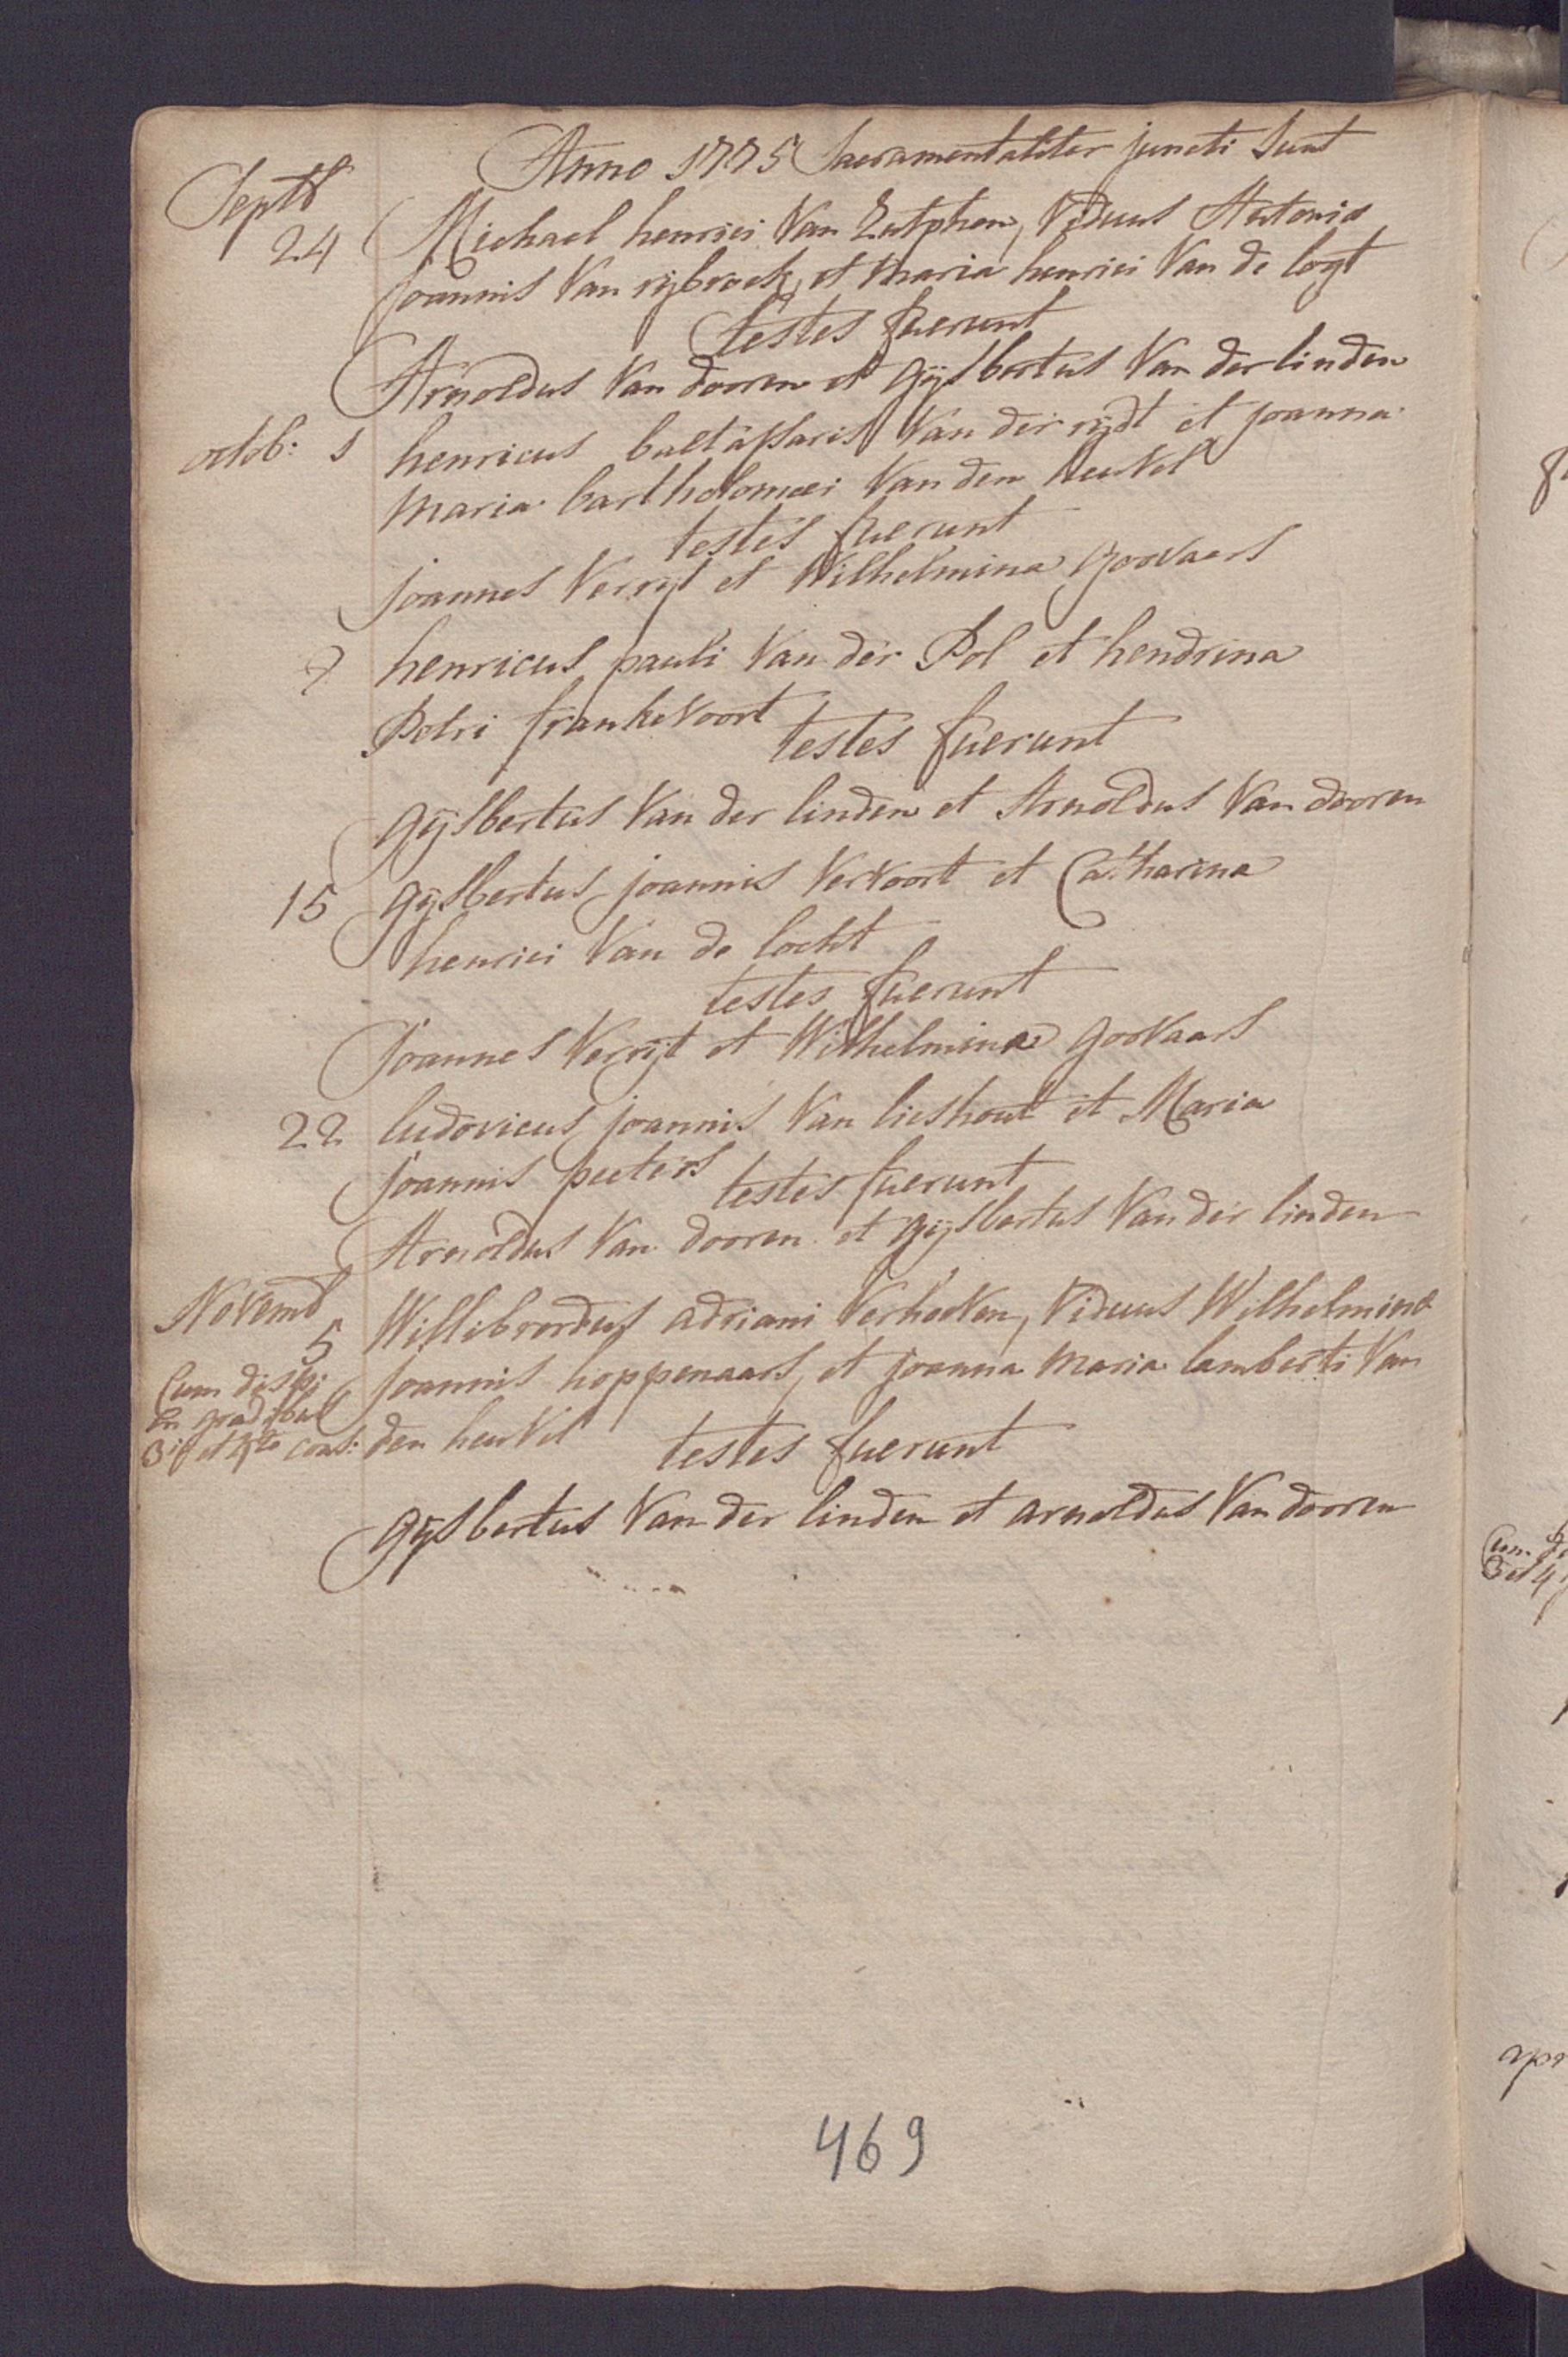 Anno 1775 Sacramentaliter juncti sunt
Septb
24 Michael henrici Van Zutphen, Viduus Antonia
Joannis Van rijbroek, et maria henrici Van de logt
testes fuerunt
Arnoldus Van dooren et Gijsbertus Van der linden
octob: 1 henricus baltassaris Van der rijdt et joanna
maria bartholomei Van den heuvel
testes fuerunt
joannes Verrijt et Wilhelmina goovaars
7 henricus pauli Van der Pol et hendrina
Petri frankevoort testes fuerunt
gijsbertus Van der linden et Arnoldus Van dooren
15 gijsbertus joannis Vervoort et Catharina
henrici Van de locht
testes fuerunt
Joannes Verrijt et Wilhelmina goovaars
22 ludovicus joannis Van lieshout et Maria
Joannis peeters testes fuerunt
Arnoldus Van dooren et gijsbertus Van der linden
Novemb
5 Willibrordus adriani Verhoeven, Viduus Wilhelminæ
Cum disp: joannis hoppenaars, et joanna maria lamberti Van
in gradibus
3io et 4to cons: den heuvel testes fuerunt
gijsbertus Van der linden et arnoldus Van dooren
469
Cum di
3 et 4
apr